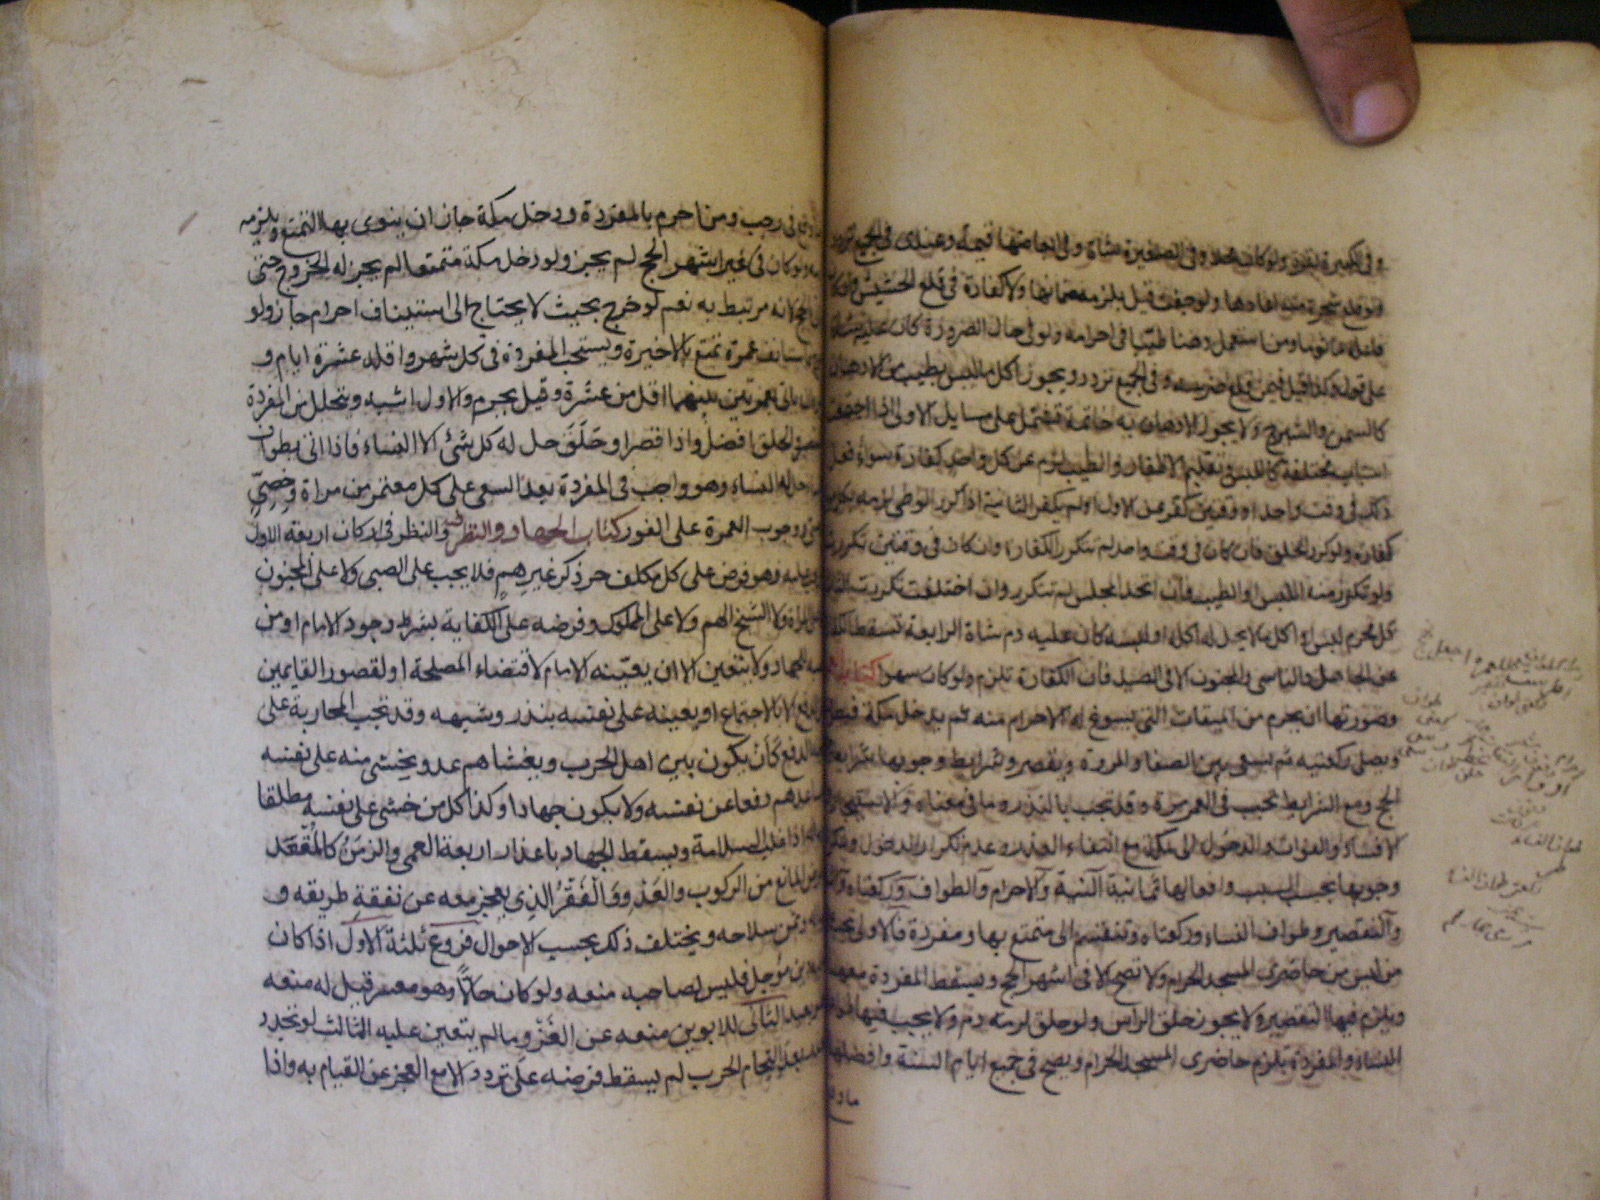 وفى الكبيرة بقرة ولو كان محلا وفى الصغيرة شاة وفى ابعاضها قيمة وعندى فى الجميع تردد
ولو قلع شجرة منه اعادها ولو جفت قيل يلزمه ضمانها ولا كفارة فى قلع الحشيش وان كان
فاعله مأثوما ومن استعمل دهنا طيبا فى احرامه ولو فى حال الضرورة كان عليه شاة
على قول وكذا قيل فيمن قلع ضرسه وفى الجميع تردد ويجوز اكل ما ليس بطيب من الادهان
كالسمن والشيرج ولا يجوز الادهان به خاتمة تشتمل على مسايل الاولى اذا اجتمعت
اسباب مختلفة كاللبس وتقليم الاظفار والطيب لزم عن كل واحد كفارة سواء فعل
ذلك فى وقت واحد او وقتين كفر عن الاول او لم يكفر الثانية اذا كرر الوطى لزمه بكل مرة
كفارة ولو كرر الحلق فان كان فى وقت واحد لم تتكرر الكفارة وان كان فى وقتين تكررت
ولو تكرر منه اللبس او الطيب فان اتحد المجلس لم تتكرر وان اختلف تكررت الثالثة
كل محرم لبس او اكل ما لا يحل له اكله او لبسه كان عليه دم شاة الرابعة تسقط الكفارة
عن الجاهل والناسى والمجنون الا فى الصيد فان الكفارة تلزم ولو كان سهوا كتاب العمرة
وصورتها ان يحرم من الميقات التى يسوغ له الاحرام منه ثم يدخل مكة فيطوف
ويصلى ركعتيه ثم يسعى بين الصفا والمروة ويقصر وشرايط وجوبها شرايط
الحج ومع الشرايط تجب فى العمر مرة وقد تجب بالنذر وما فى معناه والاستيجار و
الافساد والفوات والدخول الى مكة مع انتفاء العذر وعدم تكرار الدخول ويتكرر
وجوبها بحسب السبب وافعالها ثمانية النية والاحرام والطواف وركعتاه والسعى
والتقصير وطواف النساء وركعتاه وتنقسم الى متمتع بها ومفردة فالاولى تجب على
من ليس من حاضرى المسجد الحرام ولا تصح الا فى اشهر الحج وتسقط المفردة معها
ويلزم فيها التقصير ولا يجوز حلق الراس ولو حلق لزمه دم ولا يجب فيها طواف
النساء والمفردة تلزم حاضرى المسجد الحرام ويصح فى جميع ايام السنة وافضلها
ما وقع
ما وقع فى رجب ومن احرم بالمفردة ودخل مكة جاز ان ينوى بها التمتع ويلزمه
دم ولو كان فى غير اشهر الحج لم يجز ولو دخل مكة متمتعا لم يجز له الخروج حتى
ياتى بالحج لانه مرتبط به نعم لو خرج بحيث لا يحتاج الى استيناف احرام جاز ولو
خرج فاستانف عمرة تمتع بالاخيرة ويستحب المفردة فى كل شهر واقله عشرة ايام و
يكره ان ياتى بعمرتين بينهما اقل من عشرة وقيل يحرم والاول اشبه ويتحلل من المفردة
بالتقصير والحلق افضل واذا قصر او حلق حل له كل شئ الا النساء فاذا اتى بطواف
النساء حل له النساء وهو واجب فى المفردة بعد السعى على كل معتمر من مراة وخصى
وصبى ووجوب العمرة على الفور كتاب الجهاد والنظر فى اركان اربعة الاول
من يجب عليه وهو فرض على كل مكلف حر ذكر غير هم فلا يجب على الصبى ولا على المجنون
ولا على المراة ولا الشيخ الهم ولا على المملوك وفرضه على الكفاية بشرط وجود الامام او من
نصبه للجهاد ولا يتعين الا ان يعينه الامام لاقتضاء المصلحة او لقصور القايمين
عن الدفع الا بالاجتماع او يعينه على نفسه بنذر وشبهه وقد تجب المحاربة على
وجه الدفع كان يكون بين اهل الحرب ويغشاهم عدو يخشى منه على نفسه
فيساعدهم دفعا عن نفسه ولا يكون جهادا وكذا كل من خشى على نفسه مطلقا
او ماله اذا غلب السلامة ويسقط الجهاد باعذار اربعة العمى والزمن كالمقعد
والمرض المانع من الركوب والعدو والفقر الذى يعجز معه عن نفقة طريقه و
عياله وثمن سلاحه ويختلف ذلك بحسب الاحوال فروع ثلثة الاول اذا كان
عليه دين مؤجل فليس لصاحبه منعه ولو كان حالا وهو معسر قيل له منعه
وهو بعيد الثانى للابوين منعه عن الغزو ما لم يتعين عليه الثالث لو تجدد
العذر بعد التحام الحرب لم يسقط فرضه على تردد الا مع العجز عن القيام به واذا